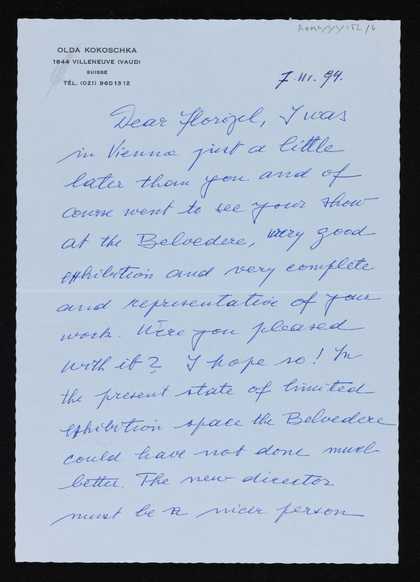 OLDA KOKOSCHKA
1844 VILLENEUVE (VAUD)
SUISSE
TEL. (021) 960 13 12
7. III. 94.
Dear Florizel, I was
in Vienna just a little
later than you and of
course went to see your show
at the Belvedere, very good
exhibition and very complete
and representative of your
work. Were you pleased
with it? I hope so! In
the present state of limited
exhibition space the Belvedere
could have not done much
better. The new director
must be a nicer person